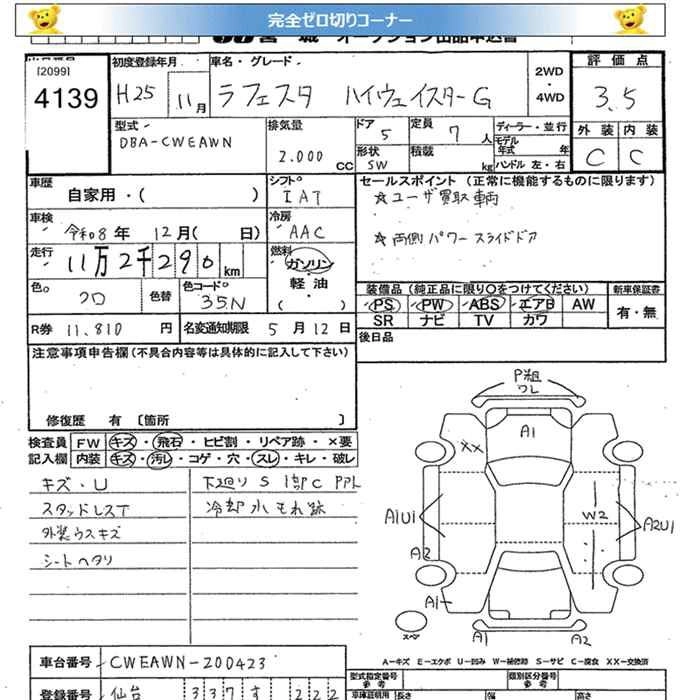 完全ゼロ切りコーナー
[2099]
4139
初度登録年月
H25 11月
車名・グレード
ラフェスタ ハイウェイスターG
2WD
・
4WD
評価点
3.5
外装 内装
C C
型式
DBA-CWEAWN
排気量
2.000 CC
ドア 5
定員 7 人
形状 SW
積載 kg
ディーラー・並行
モデル年式 年
ハンドル 左・右
車歴
自家用・( )
シフト
IAT
車検
令和8年 12月( 日)
冷房
AAC
走行
11万2千290km
燃料
ガソリン
・
軽油
( )
色
クロ
色替
色コード
35N
R券 11,810 円
名変通知期限 5月12日
セールスポイント(正常に機能するものに限ります)
☆ユーザ買取車両
☆両側パワースライドドア
装備品(純正品に限り○をつけてください)
PS PW ABS エアB AW
SR ナビ TV カワ
新車保証書
有・無
後日品
注意事項申告欄(不具合内容等は具体的に記入して下さい)
修復歴 有 〔箇所 〕
検査員記入欄
FW キズ・飛石・ヒビ割・リペア跡・×要
内装 キズ・汚レ・コゲ・穴・スレ・キレ・破レ
キズ・U
スタッドレスT
外装ウスキズ
シートヘタリ
下廻りS 1部C
冷却水もれ跡
P粗
ワレ
A1
XX
A1U1
A2
W2
A2U1
A1
スペア
A1
A2
A－キズ E－エクボ U－凹み W－補修跡 S－サビ C－腐食 XX－交換済
車台番号 CWEAWN-200423
登録番号 仙台 337 す 222
型式指定番号
参考
類別区分番号
参考
車庫証明用 長さ 幅 高さ